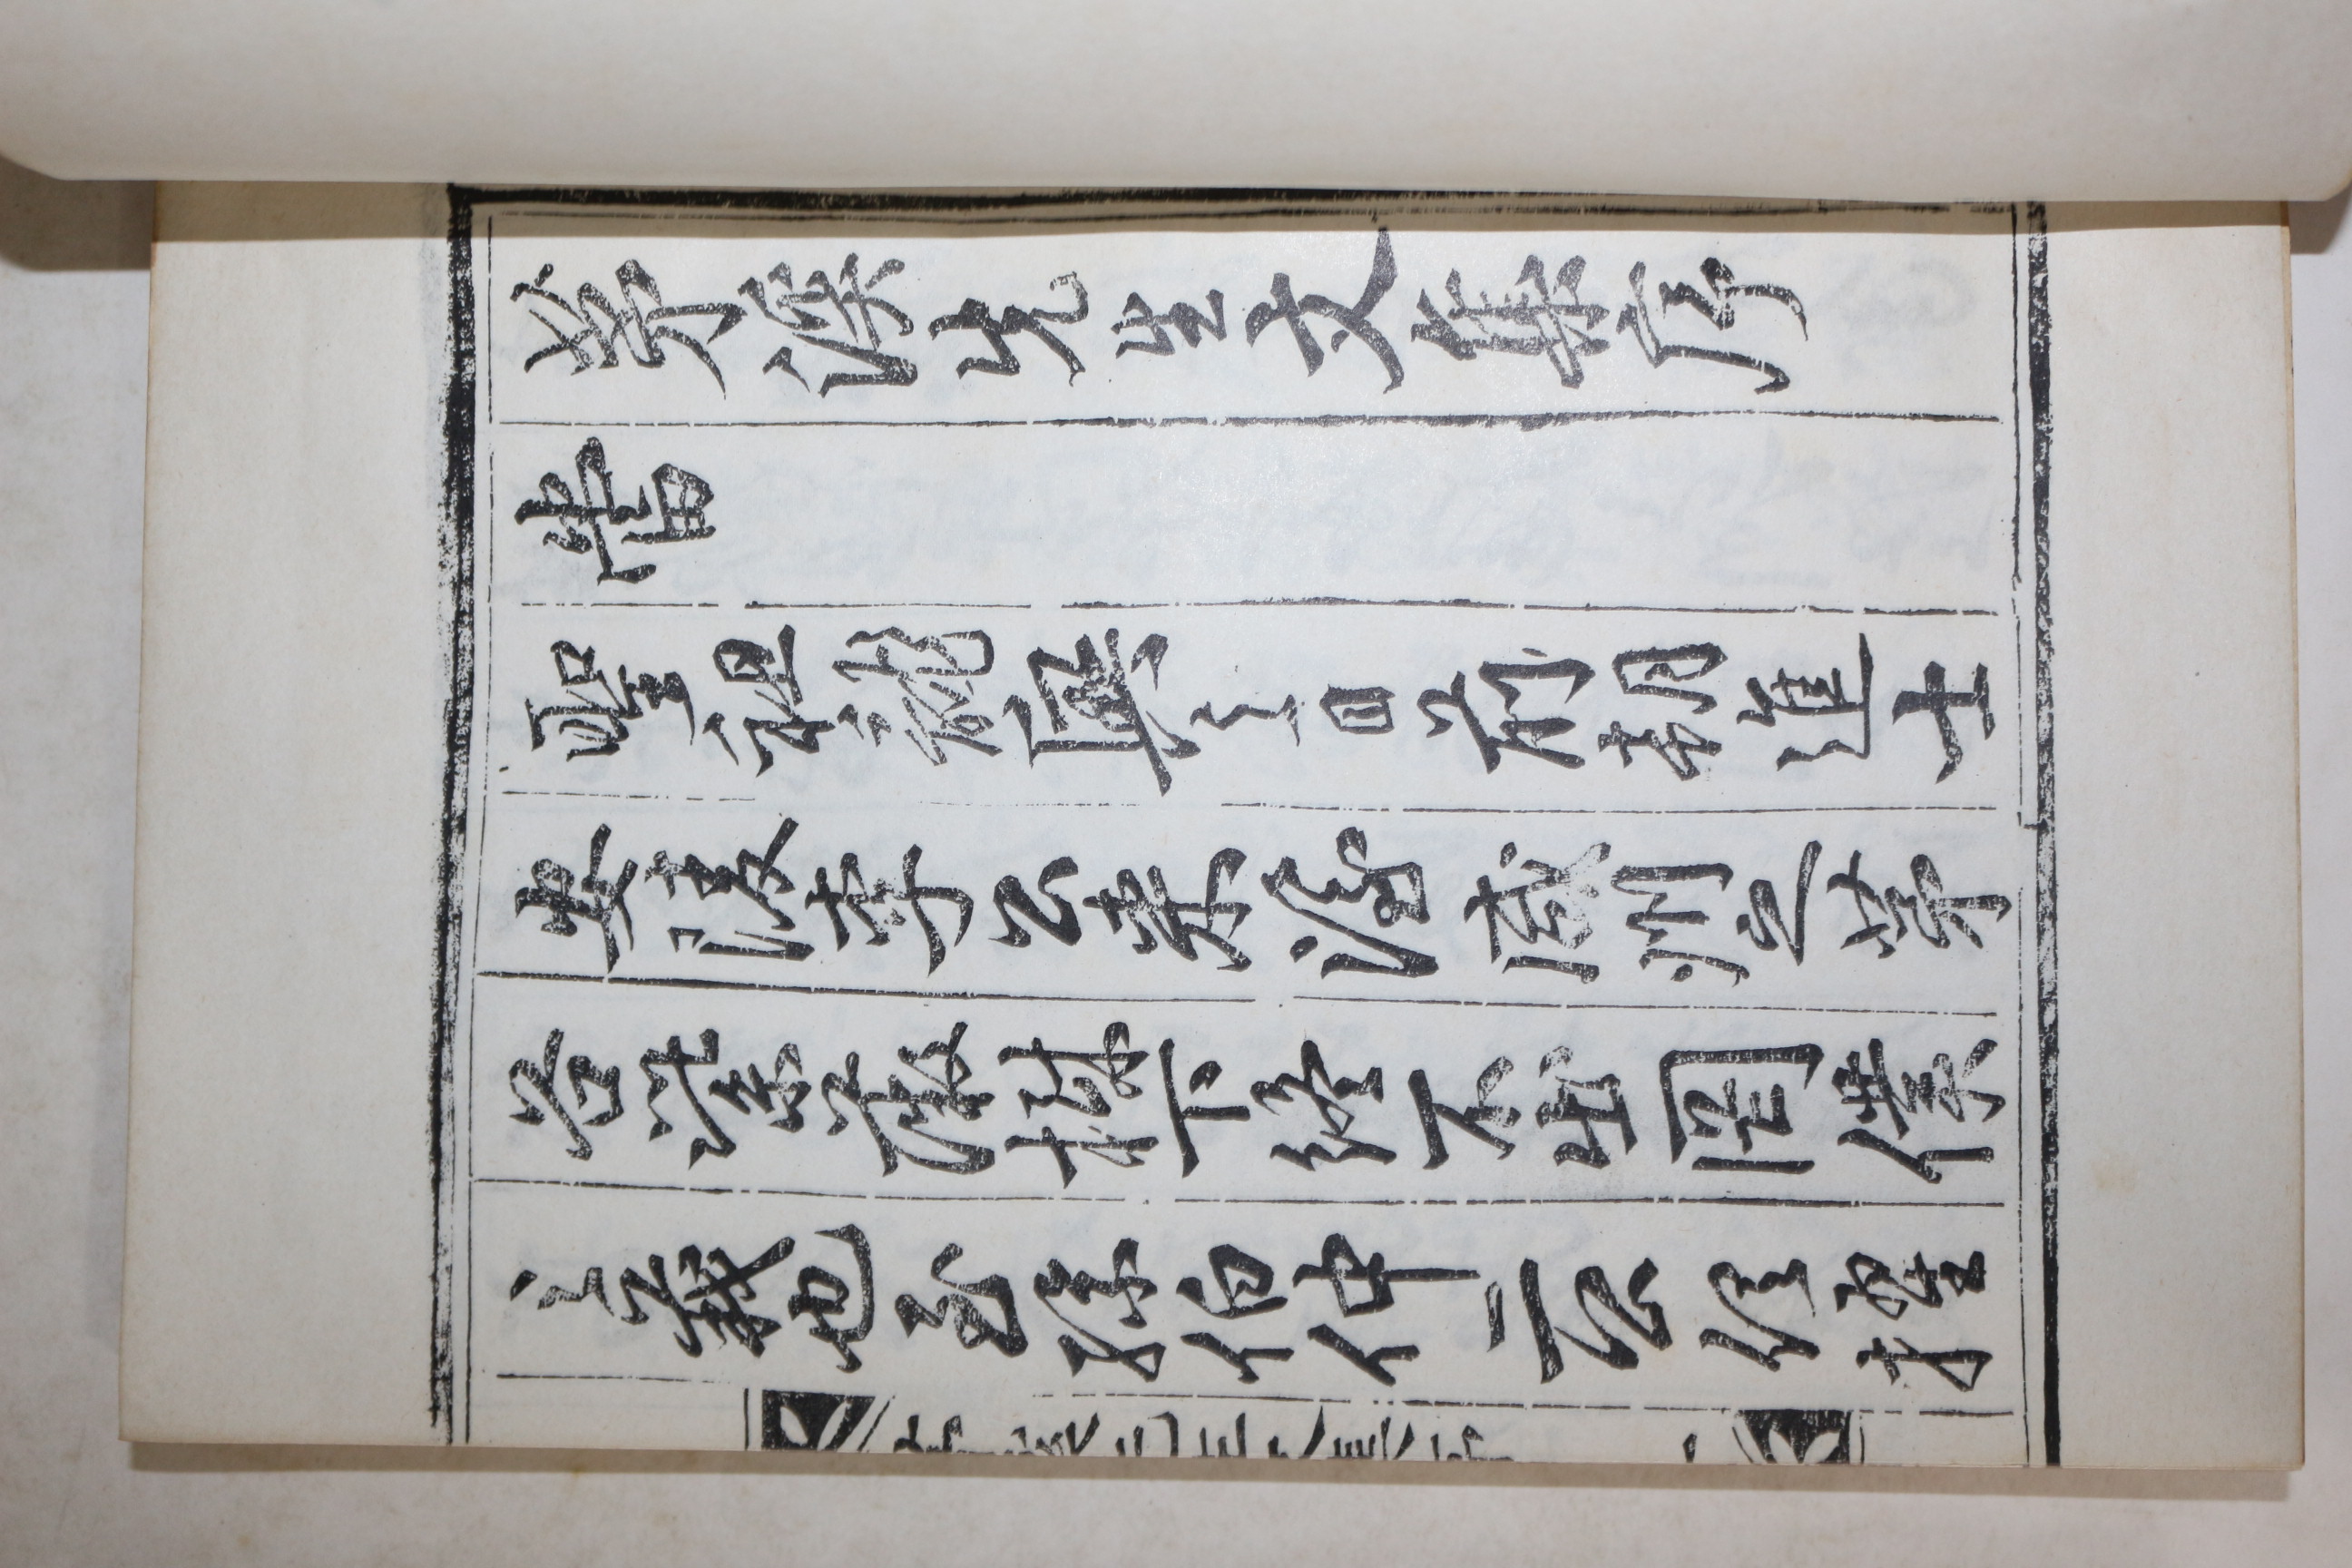 茅溪先生文集序
當
聖祖龍興之日前朝進士
安陵李公來隱咸州之茅
谷紫薇樹下終不出罔僕
之義也至孫伯仲二公俱擢